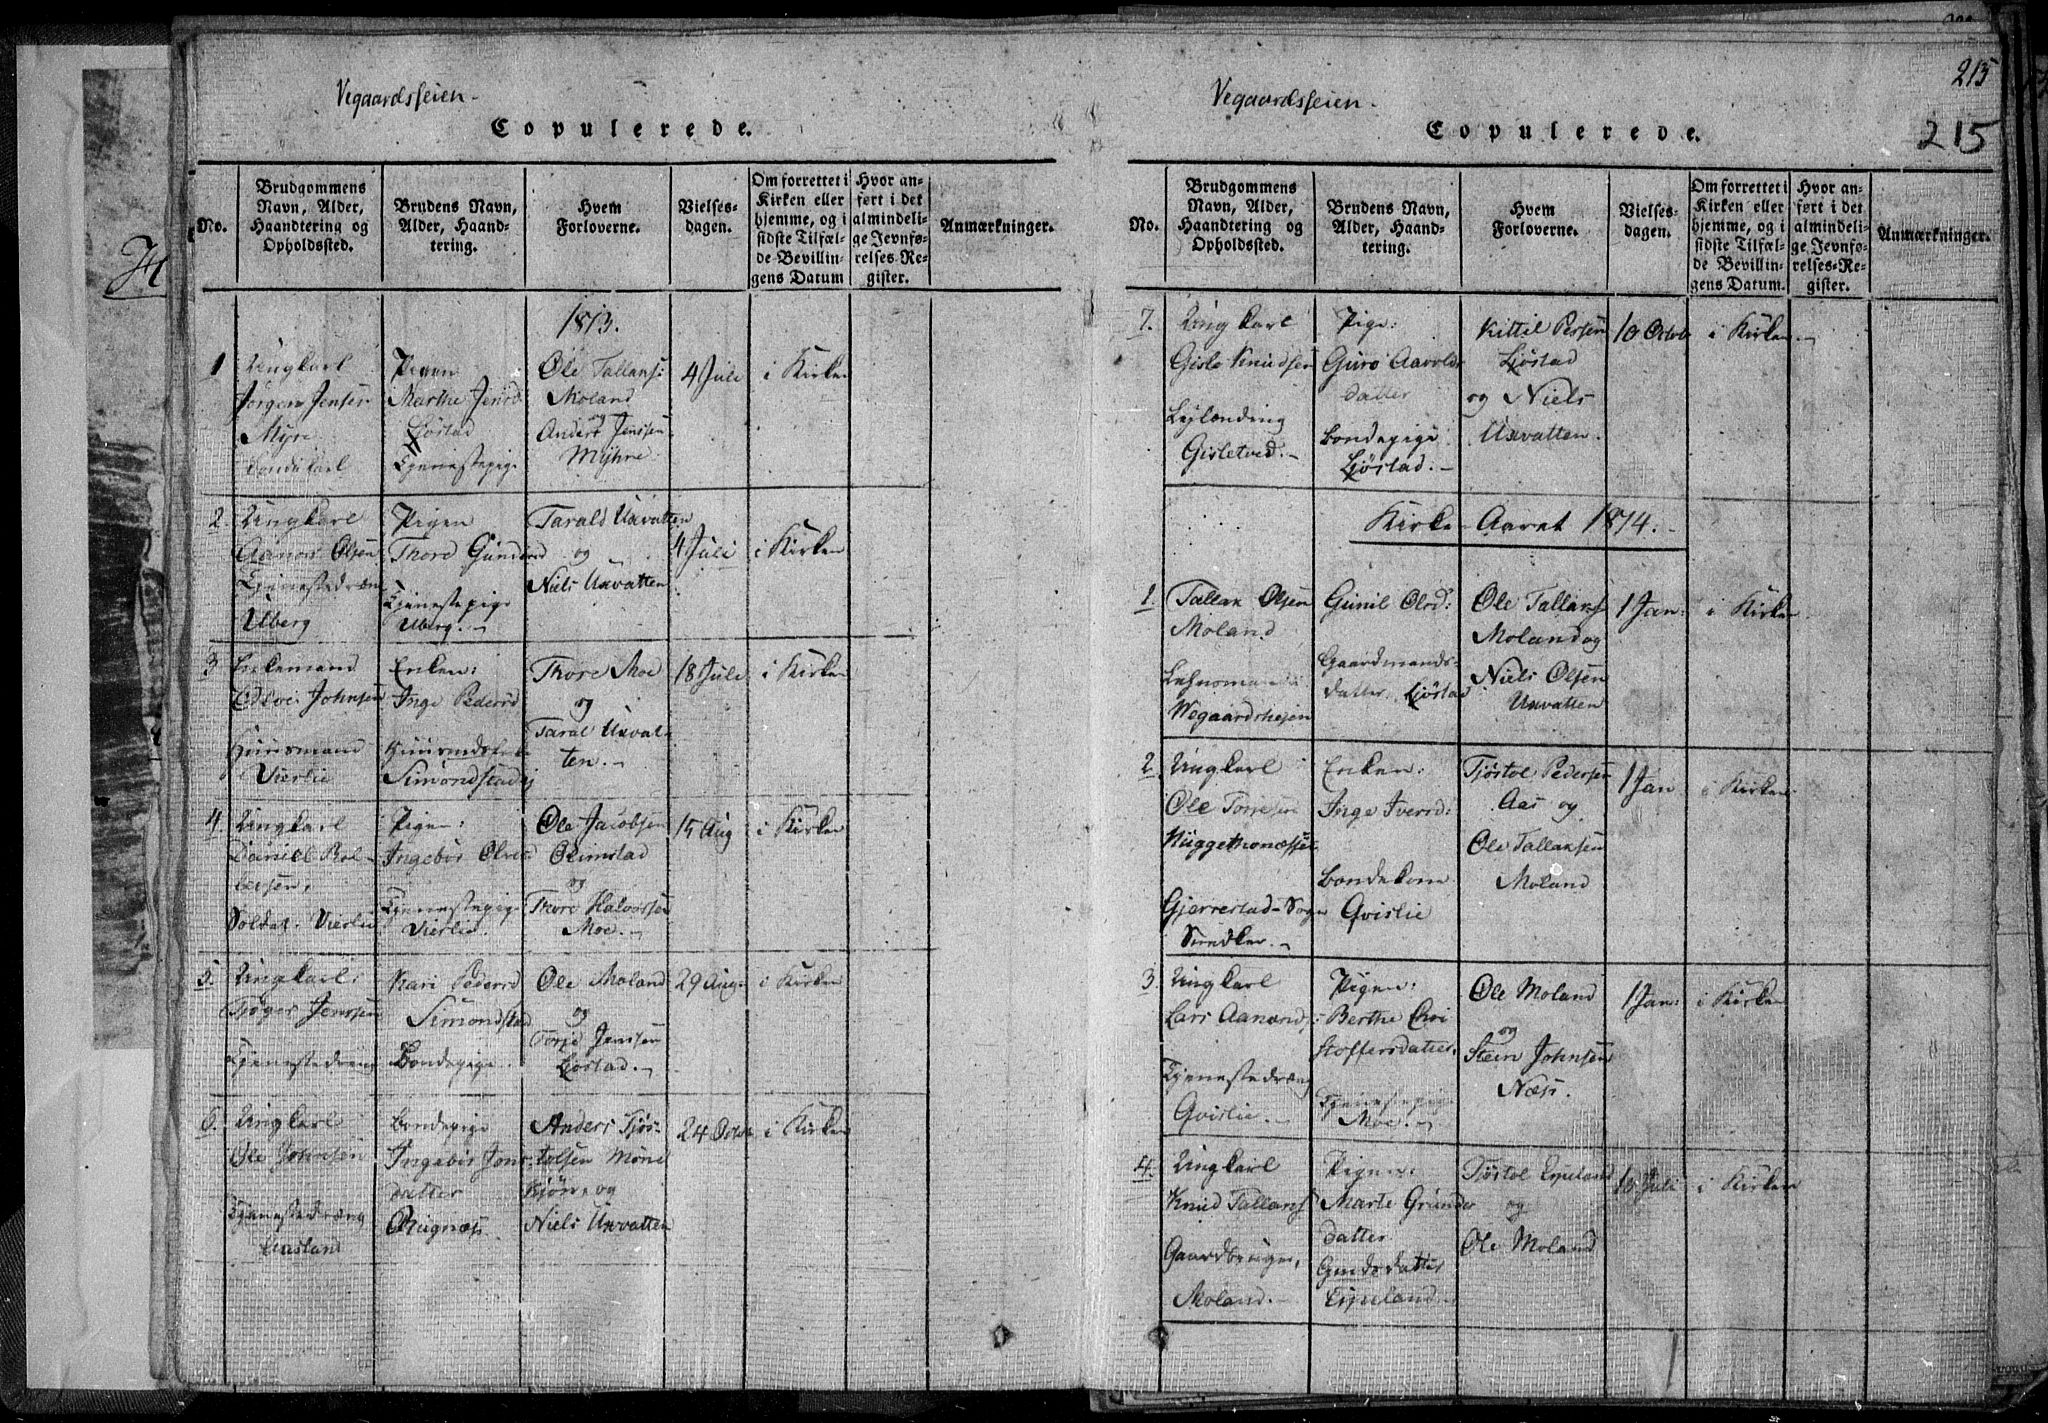 Vegaardsheien.
Copulerede.
No.
Brudgommens Navn, Alder, Haandtering og Opholdssted.
Brudens Navn, Alder, Haandtering.
Hvem Forloverne.
Vielsesdagen.
Om forrettet i Kirken eller hjemme, og i sidste Tilfælde Bevillingens Datum
Hvor anført i det almindelige Jevnførelses-Register.
Anmærkninger.
1813.
1
Ungkarl
Jörgen Jensen
Myre
Bondekarl
Pigen
Marthe Jensd
Ljöstad
Tjenestepige
Ole Tallaks:
Moland
og
Anders Jenssen
Myhre
4 Juli
i Kirken
2.
Ungkarl
Aanon Olsen
Tjenestedræng
Uberg
Pigen
Thore Gunders
Tjenestepige
Uberg.
Tarald Uxvatten
og
Niels Uxvatten
4 Juli
i Kirken
3
Enkemand
Johnsen
Huusmand
Vierlie
Enken:
Inge Pedersd
Simondstad
Thore Moe
og
Taral Uxvat-
ten.
18 Juli
i Kirken
4.
Ungkarl
Daniel
Soldat. Vierlie
Pigen:
Ingebör Olves
Tjenestepige
Vierlie.
Ole Jacobsen
Olimstad
og
Thore Halvorsen
Moe.
15 Aug
i Kirken
5.
Ungkarl:
Tjöger Jenssen
Tjenestedreng
Kari Pedersd
Simondstad
Bondepige.
Ole Moland
og
Torje Jenssen
Ljöstad.
29 Aug.
i Kirken
6.
Ungkarl
Ole Johnsen
Tjenestedræng
Bondepige
Ingebör Jons
datter
Rugnæss.
Anders Tjös-
tolsen Möne
Kjörr og
Niels Uxvatten
24 Octob
i Kirken
215
Vegaardsheien.
Copulerede.
215
No.
Brudgommens Navn, Alder, Haandtering og Opholdssted.
Brudens Navn, Alder, Haandtering.
Hvem Forloverne.
Vielsesdagen.
Om forrettet i Kirken eller hjemme, og i sidste Tilfælde Bevillingens Datum.
Hvor anført i det almindelige Jevnførelses-Register.
Anmærkninger.
7.
Ungkarl
Gisle Knudsen
Leylænding
Gisletved.
Pige:
Guro Aavolds
datter
Bondepige
Ljöstad.
Kittil Persen
Ljöstad
og Niels
Uxvatten.
10 Octob
i Kirken.
Kirke-Aaret 1814.
1.
Tallak Olsen
Moland
Lehnsmand i
Wegaardsheien
Gunil Olsd:
Gaardmands-
datter Ljöstad
Ole Tallaks
Moland og
Niels Olsen
Uxvatten
1 Jan:
i Kirken
2
Ungkarl
Ole Torjesen
Gjerrestad-Sogn
Snedker.
Enken:
Inge Iversd:
Bondekone
Qvislie
Tjöstol Pedersen
Aas og
Ole Tallaksen
Moland
1 Jan
i Kirken
3
Ungkarl
Lars Aanond
Tjenestedræng
Qvislie.
Pigen:
Berthe Chri
stoffersdatter.
Tjenestepige
Moe.
Ole Moland
og
Steen Johnsen
Næss.
1 Jan:
i Kirken
4.
Ungkarl
Knud Tallaks
Gaardbruger,
Moland.
Pigen:
Marte Gunders
datter
Espeland.
Tjöstol Espeland
og
Ole Moland
10 Juli
i Kirken